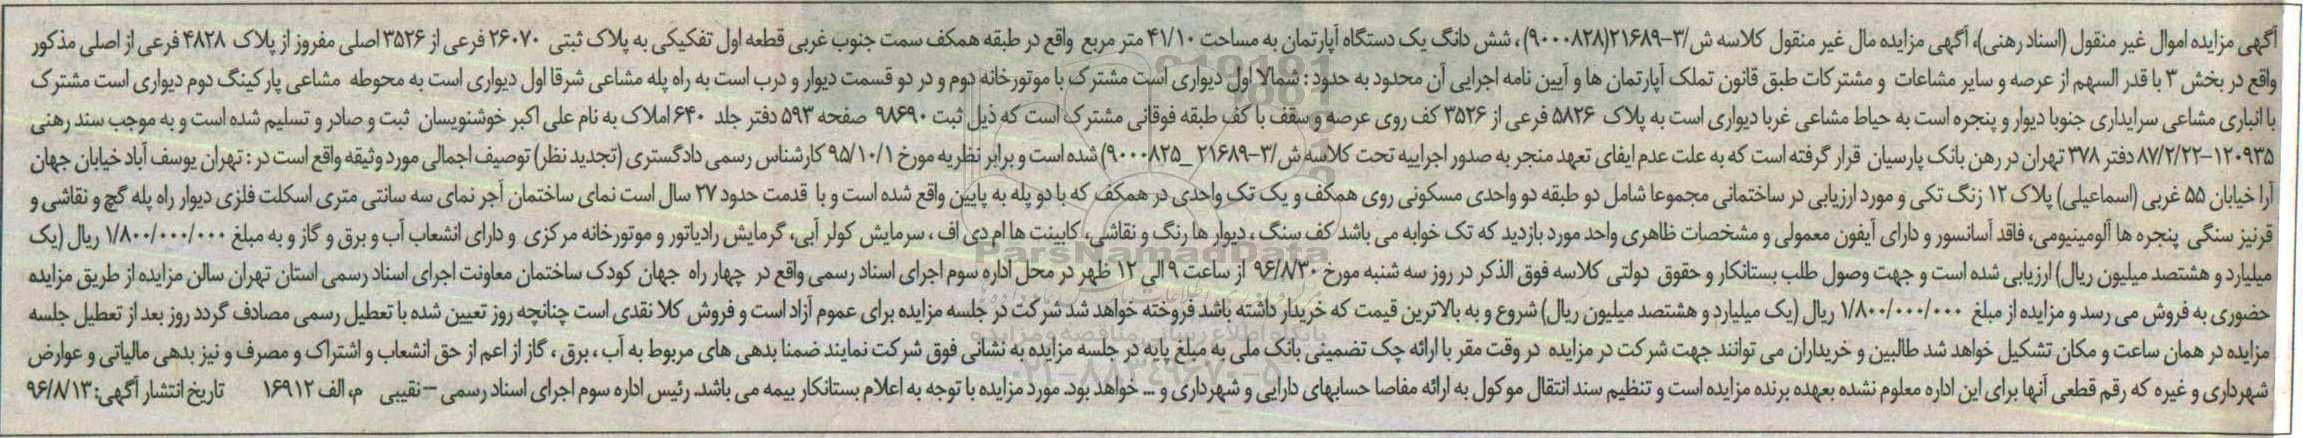 آگهی مزایده اموال غیر منقول (اسناد رهنی)، آگهی مزایده مال غیر منقول کلاسه ش/۳-۲۱۶۸۹(۹۰۰۰۸۲۸) ، شش دانگ یک دستگاه آپارتمان به مساحت ۴۱/۱۰ متر مربع واقع در طبقه همکف سمت جنوب غربی قطعه اول تفکیکی به پلاک ثبتی ۲۶۰۷۰ فرعی از ۳۵۲۶ اصلی مفروز از پلاک ۴۸۲۸ فرعی از اصلی مذکور
واقع در بخش ۳ با قدر السهم از عرصه و سایر مشاعات و مشترکات طبق قانون تملک آپارتمان ها و آیین نامه اجرایی آن محدود به حدود : شمالا اول دیواری است مشترک با موتورخانه دوم و در دو قسمت دیوار و درب است به راه پله مشاعی شرقا اول دیواری است به محوطه مشاعی پارکینگ دوم دیواری است مشترک
با انباری مشاعی سرایداری جنوبا دیوار و پنجره است به حیاط مشاعی غربا دیواری است به پلاک ۵۸۲۶ فرعی از ۳۵۲۶ کف روی عرصه و سقف با کف طبقه فوقانی مشترک است که ذیل ثبت ۹۸۶۹۰ صفحه ۵۹۳ دفتر جلد ۶۴۰ املاک به نام علی اکبر خوشنویسان ثبت و صادر و تسلیم شده است و به موجب سند رهنی
۱۲۰۹۳۵-۸۷/۲/۲۲ دفتر ۳۷۸ تهران در رهن بانک پارسیان قرار گرفته است که به علت عدم ایفای تعهد منجر به صدور اجراییه تحت کلاسه ش/۳-۲۱۶۸۹ _۹۰۰۰۸۲۵) شده است و برابر نظریه مورخ ۹۵/۱۰/۱ کارشناس رسمی دادگستری (تجدید نظر) توصیف اجمالی مورد وثیقه واقع است در : تهران یوسف آباد خیابان جهان
آرا خیابان ۵۵ غربی (اسماعیلی) پلاک ۱۲ زنگ تکی و مورد ارزیابی در ساختمانی مجموعا شامل دو طبقه دو واحدی مسکونی روی همکف و یک تک واحدی در همکف که با دو پله به پایین واقع شده است و با قدمت حدود ۲۷ سال است نمای ساختمان آجر نمای سه سانتی متری اسکلت فلزی دیوار راه پله گچ و نقاشی و
قرنیز سنگی پنجره ها آلومینیومی، فاقد آسانسور و دارای آیفون معمولی و مشخصات ظاهری واحد مورد بازدید که تک خوابه می باشد کف سنگ ، دیوار ها رنگ و نقاشی، کابینت ها ام دی اف ، سرمایش کولر آبی، گرمایش رادیاتور و موتورخانه مرکزی و دارای انشعاب آب و برق و گاز و به مبلغ ۱/۸۰۰/۰۰۰/۰۰۰ ریال (یک
میلیارد و هشتصد میلیون ریال) ارزیابی شده است و جهت وصول طلب بستانکار و حقوق دولتی کلاسه فوق الذکر در روز سه شنبه مورخ ۹۶/۸/۳۰ از ساعت ۹ الی ۱۲ ظهر در محل اداره سوم اجرای اسناد رسمی واقع در چهار راه جهان کودک ساختمان معاونت اجرای اسناد رسمی استان تهران سالن مزایده از طریق مزایده
حضوری به فروش می رسد و مزایده از مبلغ ۱/۸۰۰/۰۰۰/۰۰۰ ریال (یک میلیارد و هشتصد میلیون ریال) شروع و به بالاترین قیمت که خریدار داشته باشد فروخته خواهد شد شرکت در جلسه مزایده برای عموم آزاد است و فروش کلا نقدی است چنانچه روز تعیین شده با تعطیل رسمی مصادف گردد روز بعد از تعطیل جلسه
مزایده در همان ساعت و مکان تشکیل خواهد شد طالبین و خریداران می توانند جهت شرکت در مزایده در وقت مقرر با ارائه چک تضمینی بانک ملی به مبلغ پایه در جلسه مزایده به نشانی فوق شرکت نمایند ضمنا بدهی های مربوط به آب ، برق ، گاز از اعم از حق انشعاب و اشتراک و مصرف و نیز بدهی مالیاتی و عوارض
شهرداری و غیره که رقم قطعی آنها برای این اداره معلوم نشده بعهده برنده مزایده است و تنظیم سند انتقال موکول به ارائه مفاصا حسابهای دارایی و شهرداری و ... خواهد بود. مورد مزایده با توجه به اعلام بستانکار بیمه می باشد. رئیس اداره سوم اجرای اسناد رسمی – نقیبی م، الف ۱۶۹۱۲ تاریخ انتشار آگهی: ۹۶/۸/۱۳
ParsNamadData
۰۲۱-۸۸۳۴۹۶۷۰-۵